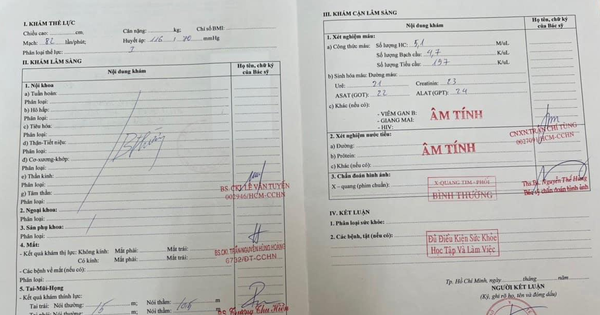 I. KHÁM THỂ LỰC
Chiều cao: cm; Cân nặng: kg; Chỉ số BMI:
Mạch: 82 lần/phút; Huyết áp: 116 / 70 mmHg
Phân loại thể lực: 3
II. KHÁM LÂM SÀNG
Nội dung khám
Họ tên, chữ ký của Bác sỹ
1. Nội khoa
a) Tuần hoàn:
Phân loại:
b) Hô hấp:
Phân loại:
c) Tiêu hóa:
Phân loại:
d) Thận-Tiết niệu:
Phân loại:
đ) Cơ-xương-khớp:
Phân loại:
e) Thần kinh:
Phân loại:
g) Tâm thần:
Phân loại:
BS.CKI LÊ VĂN TUYÊN
002946/HCM-CCHN
2. Ngoại khoa:
Phân loại:
3. Sản phụ khoa:
Phân loại:
4. Mắt:
- Kết quả khám thị lực: Không kính: Mắt phải: Mắt trái:
Có kính: Mắt phải: Mắt trái:
- Các bệnh về mắt (nếu có):
Phân loại:
BS.CKI. TRẦN NGUYỄN HƯNG HOÀNG
6732/ĐT-CCHN
5. Tai-Mũi-Họng
- Kết quả khám thính lực:
Tai trái: Nói thường: m; Nói thầm: m;
III. KHÁM CẬN LÂM SÀNG
Nội dung khám
Họ tên, chữ ký của Bác sỹ
1. Xét nghiệm máu:
a) Công thức máu: Số lượng HC: 5,1 M/uL
Số lượng Bạch cầu: 4,7 K/uL
Số lượng Tiểu cầu: 197 K/uL
b) Sinh hóa máu: Đường máu:
Urê: 21 Creatinin: 83
ASAT (GOT): 22 ALAT (GPT): 24
c) Khác (nếu có):
- VIÊM GAN B:
- GIANG MAI:
- HIV:
ÂM TÍNH
2. Xét nghiệm nước tiểu:
a) Đường:
b) Prôtêin:
c) Khác (nếu có):
ÂM TÍNH
CNXN TRẦN CHÍ TÙNG
3. Chẩn đoán hình ảnh:
X – quang (phim chuẩn):
X-QUANG TIM - PHỔI
BÌNH THƯỜNG
Ths.Bs. Nguyễn Thế Hùng
Bác sỹ chẩn đoán hình ảnh
IV. KẾT LUẬN
1. Phân loại sức khỏe:
2. Các bệnh, tật (nếu có):
Đủ Điều Kiện Sức Khỏe
Học Tập Và Làm Việc
Tp. Hồ Chí Minh, ngày tháng năm
NGƯỜI KẾT LUẬN
(Ký, ghi rõ họ, tên và đóng dấu)